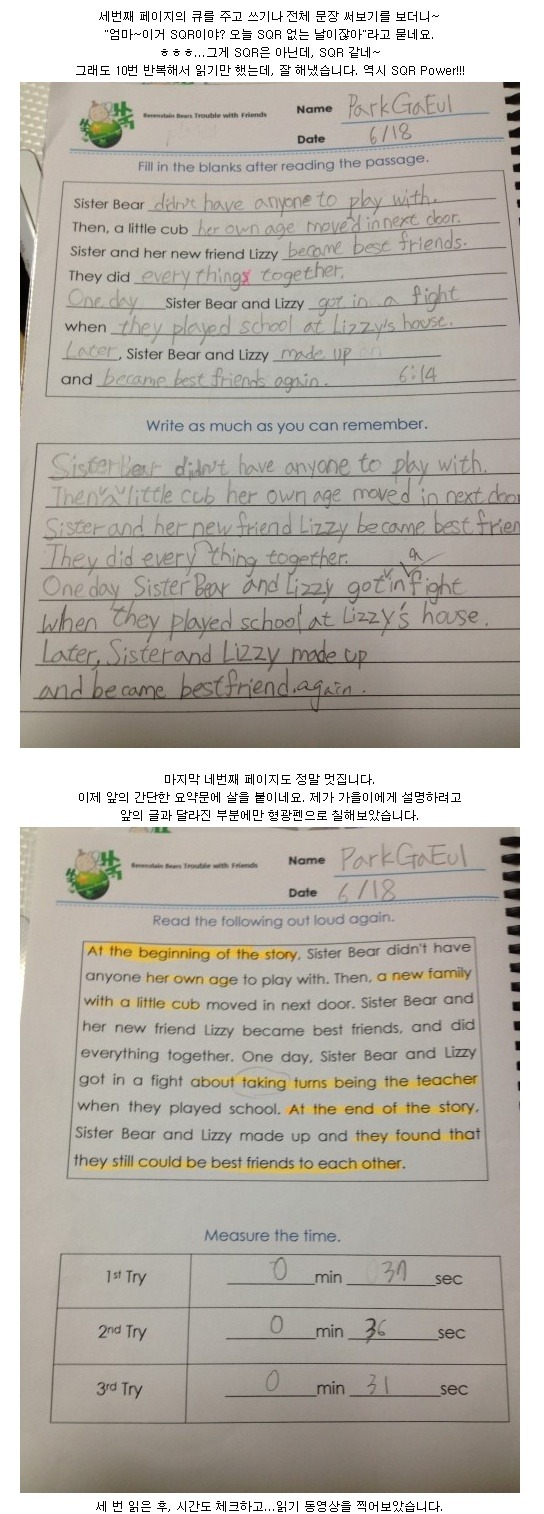 세번째 페이지의 큐를 주고 쓰기나 전체 문장 써보기를 보더니~
"엄마~이거 SQR이야? 오늘 SQR 없는 날이잖아"라고 묻네요.
ㅎㅎㅎ...그게 SQR은 아닌데, SQR 같네~
그래도 10번 반복해서 읽기만 했는데, 잘 해냈습니다. 역시 SQR Power!!!
Berenstain Bears Trouble with Friends
Name ParkGaEul
Date 6/18
Fill in the blanks after reading the passage.
Sister Bear didn't have anyone to play with.
Then, a little cub her own age moved in next door.
Sister and her new friend Lizzy became best friends.
They did every things together.
One day Sister Bear and Lizzy got in a fight
when they played school at Lizzy's house.
Later, Sister Bear and Lizzy made up
and became best friends again. 6:14
Write as much as you can remember.
Sister Bear didn't have anyone to play with.
Then a little cub her own age moved in next door
Sister and her new friend Lizzy became best frien
They did every thing together.
One day Sister Bear and Lizzy got in a fight
when they played school at Lizzy's house.
Later, Sister and Lizzy made up
and became best friend. again.
마지막 네번째 페이지도 정말 멋집니다.
이제 앞의 간단한 요약문에 살을 붙이네요. 제가 가을이에게 설명하려고
앞의 글과 달라진 부분에만 형광펜으로 칠해보았습니다.
Berenstain Bears Trouble with Friends
Name ParkGaEul
Date 6/18
Read the following out loud again.
At the beginning of the story, Sister Bear didn't have
anyone her own age to play with. Then, a new family
with a little cub moved in next door. Sister Bear and
her new friend Lizzy became best friends, and did
everything together. One day, Sister Bear and Lizzy
got in a fight about taking turns being the teacher
when they played school. At the end of the story,
Sister Bear and Lizzy made up and they found that
they still could be best friends to each other.
Measure the time.
1st Try 0 min 37 sec
2nd Try 0 min 36 sec
3rd Try 0 min 31 sec
세 번 읽은 후, 시간도 체크하고...읽기 동영상을 찍어보았습니다.